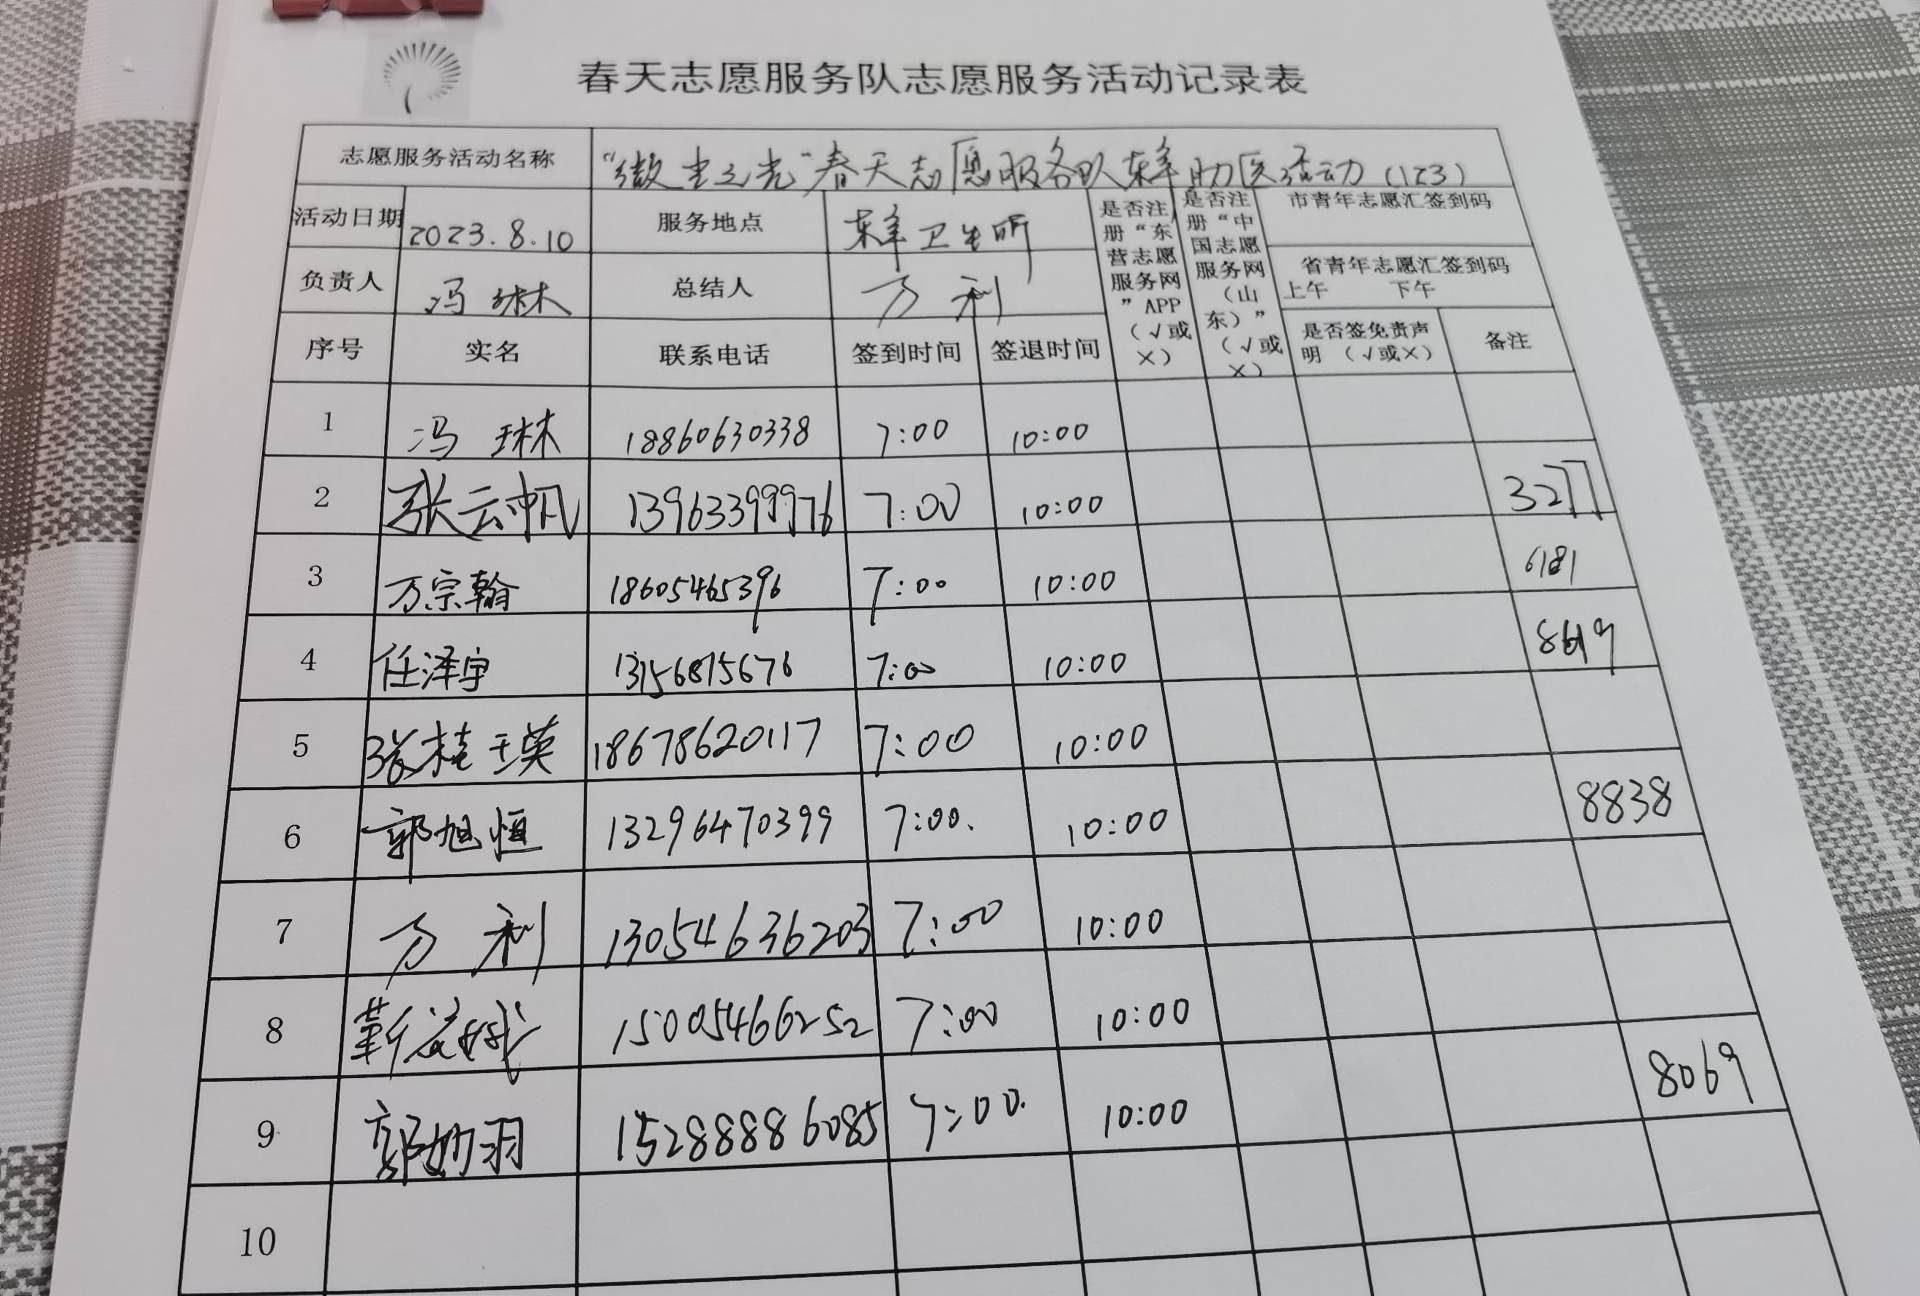 春天志愿服务队志愿服务活动记录表
志愿服务活动名称 “微尘之光”春天志愿服务队东羊助医活动（123）
活动日期 2023.8.10 服务地点 东羊卫生所
负责人 冯琳 总结人 万利
是否注册“东营志愿服务网”APP（√或×）
是否注册“中国志愿服务网（山东）”（√或×）
市青年志愿汇签到码
省青年志愿汇签到码
上午 下午
序号 实名 联系电话 签到时间 签退时间 是否签免责声明（√或×） 备注
1 冯琳 18860630338 7:00 10:00
2 张云帆 13963399976 7:00 10:00 3277
3 万宗翰 18605465396 7:00 10:00 6181
4 任泽宇 13156815676 7:00 10:00 8619
5 张桂英 18678620117 7:00 10:00
6 郭旭恒 13296470399 7:00. 10:00 8838
7 万利 13054636203 7:00 10:00
8 15005466252 7:00 10:00
9 郭妙羽 15288886085 7:00. 10:00 8069
10